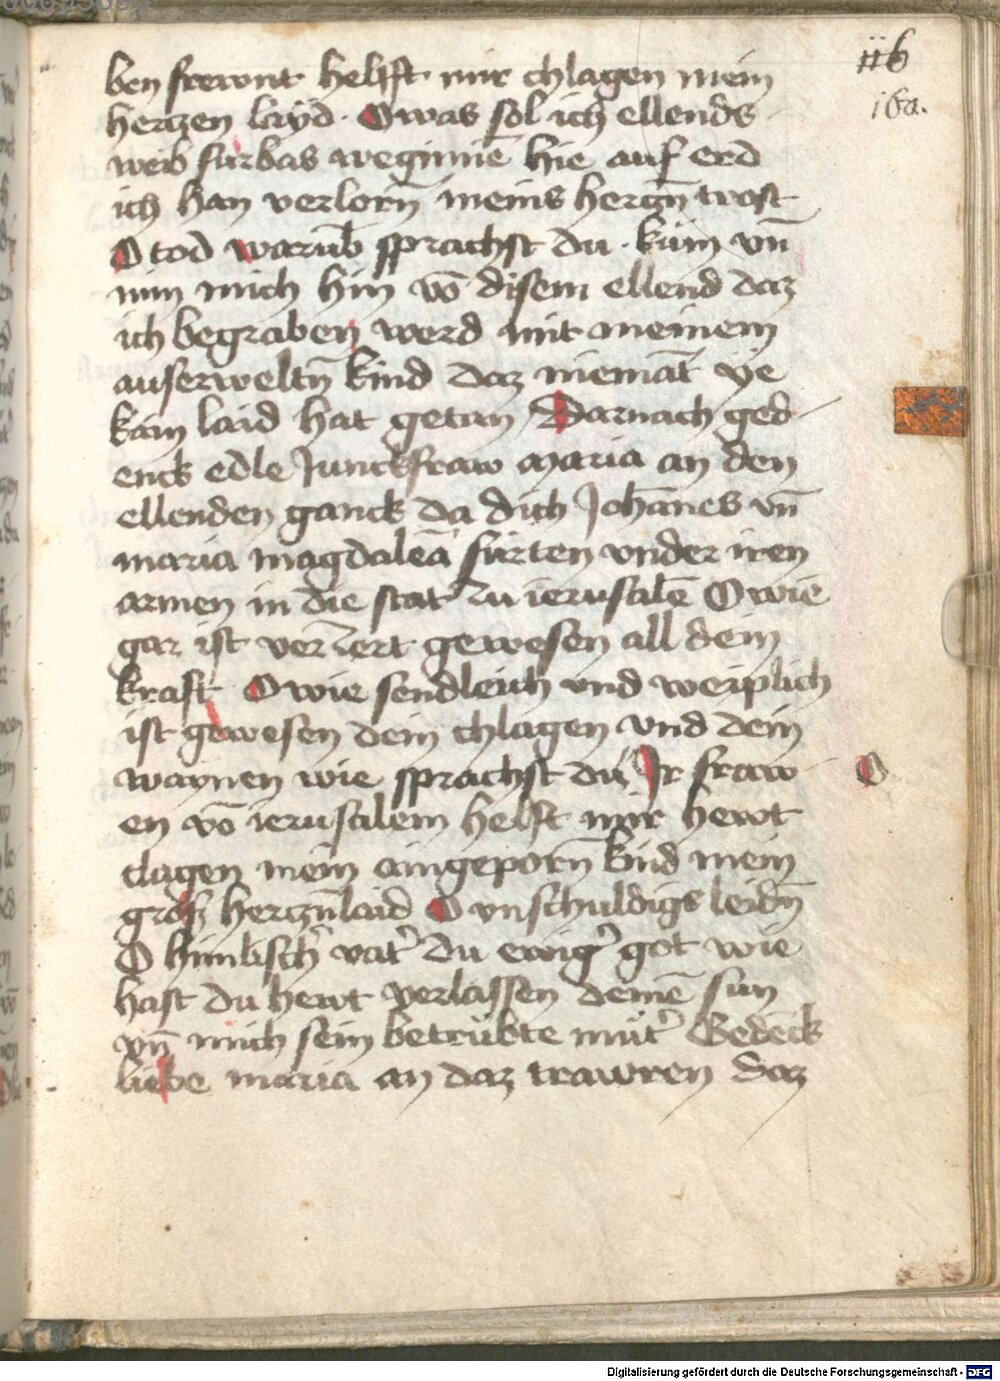 116
160.
ben frewnt helfft mir chlagen mein
hertzen layd. O was sol ich ellends
weib fürbas weginnē hie auf erd
ich han verlorn̄ meins hertzn̄ trost
O tod warūb sprachst du. kům vn̄
nim mich hin vō disem ellend daz
ich begraben werd mit meinem
auserweltn̄ kind daz niemāt ye
kain laid hat getan Darnach ged
enck edle Junckfraw maria an den
ellenden ganck da dich Johānes vn̄
maria magdalēa fürten vnder iren
armen in die stat zu ierusalē O wie
gar ist verzert gewesen all dein
kraft O wie sendleich vnd weiplich
ist gewesen dein chlagen vnd dein
waynen wie sprachst du Ir fraw
en vō ierusalem helft mir hewt
clagen mein aingeporn̄ kind mein
groß hertzn̄laid O vnschuldigs leidn̄
O himlisch' vat' du ewig' got wie
hast du hewt verlassen deinē sun
vn̄ mich sein betrübte müt' Gedēck
liebe maria an daz trawren daz
O
Digitalisierung gefördert durch die Deutsche Forschungsgemeinschaft - DFG